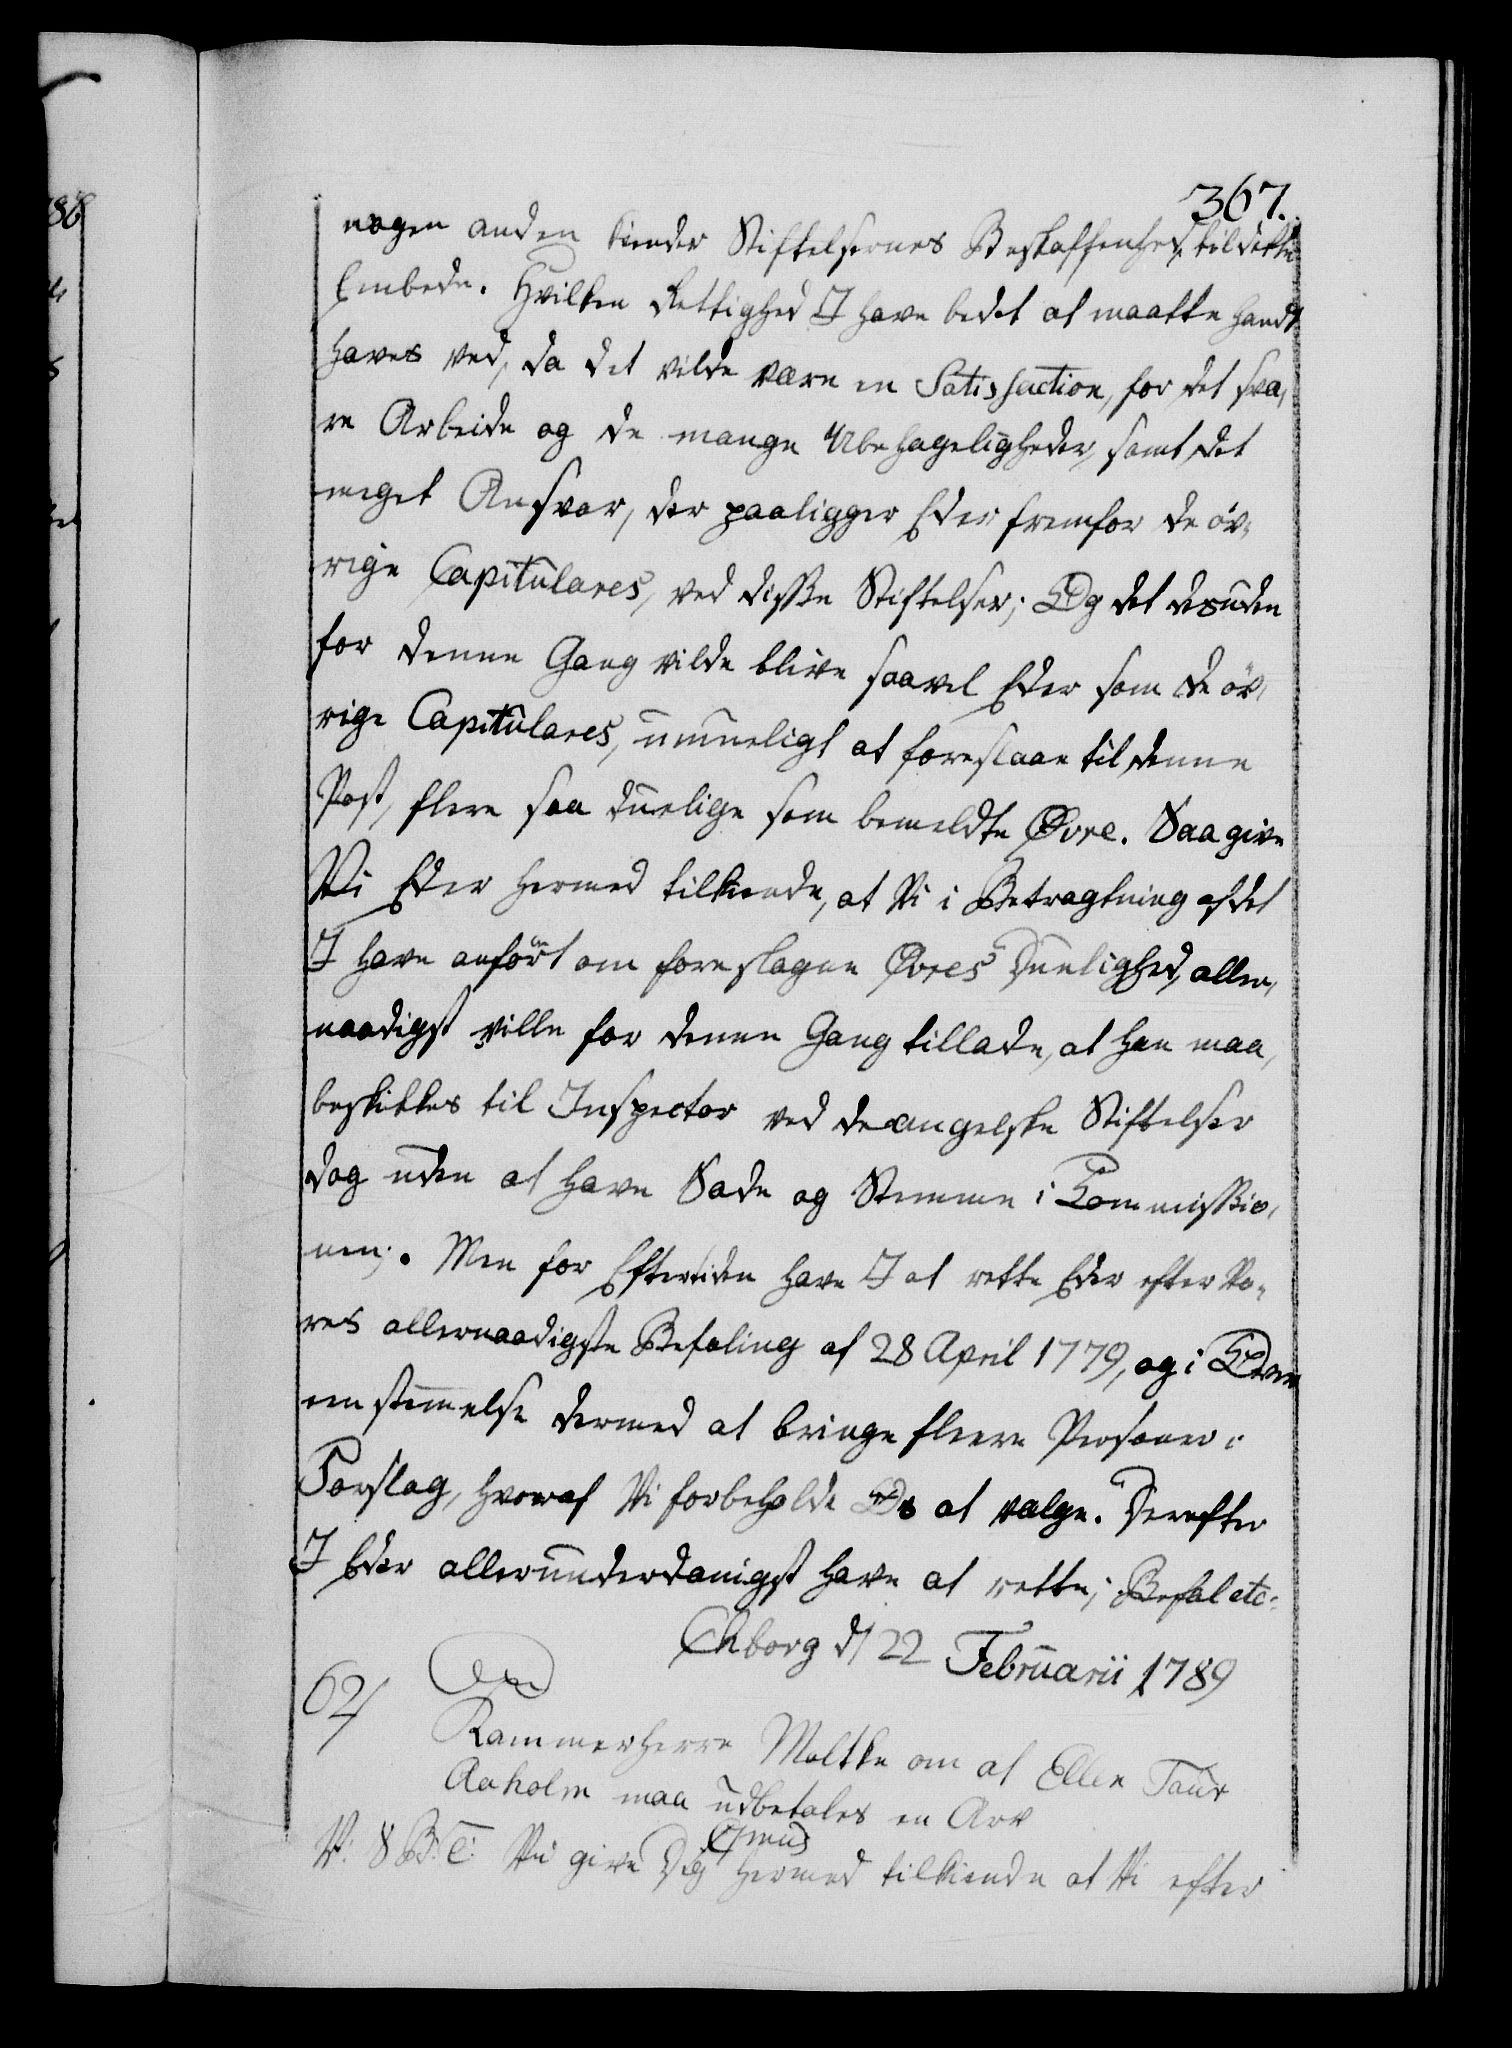 367.
nogen anden kiender Stiftelsernes Beskaffenhed, til dette
Embede. Hvilken Rettighed I have bedet at maatte hand¬
haves ved, da det vilde være en Satisfaction, for det sva¬
re Arbeide og de mange Ubehageligheder, samt det
meget Ansvar, der paaligger Eder fremfor de øv¬
rige Capitulares, ved disse Stiftelser; Og det desuden
for denne Gang vilde blive saavel Eder som de øv¬
rige Capitulares, umueligt at foreslaae til denne
Post, flere saa duelige som bemeldte Øvre. Saa give
Vi Eder hermed tilkiende, at Vi i Betragtning af det
I have anført om foreslagne Øvres Duelighed, aller¬
naadigst ville for denne Gang tillade, at han maa
beskikkes til Inspector ved de angelske Stiftelser
dog uden at have Sæde og Stemme i Commissio¬
nen;. Men for Eftertiden have I at rette Eder efter Vo¬
res allernaadigste Befaling af 28 April 1779, og i Over
eenstemmelse dermed at bringe fleere Personer i
Forslag, hvoraf Vi forbeholde Os at vælge. Derefter
I Eder allerunderdanigst have at rette; Befal etc:
Chborg d/ 22 Februarii 1789
62/
Kammerherre Moltke om at Ellen Taur
Aaholm maa udbetales en Arv
V: G B: T: Vi give Dig hermed tilkiende at Vi efter